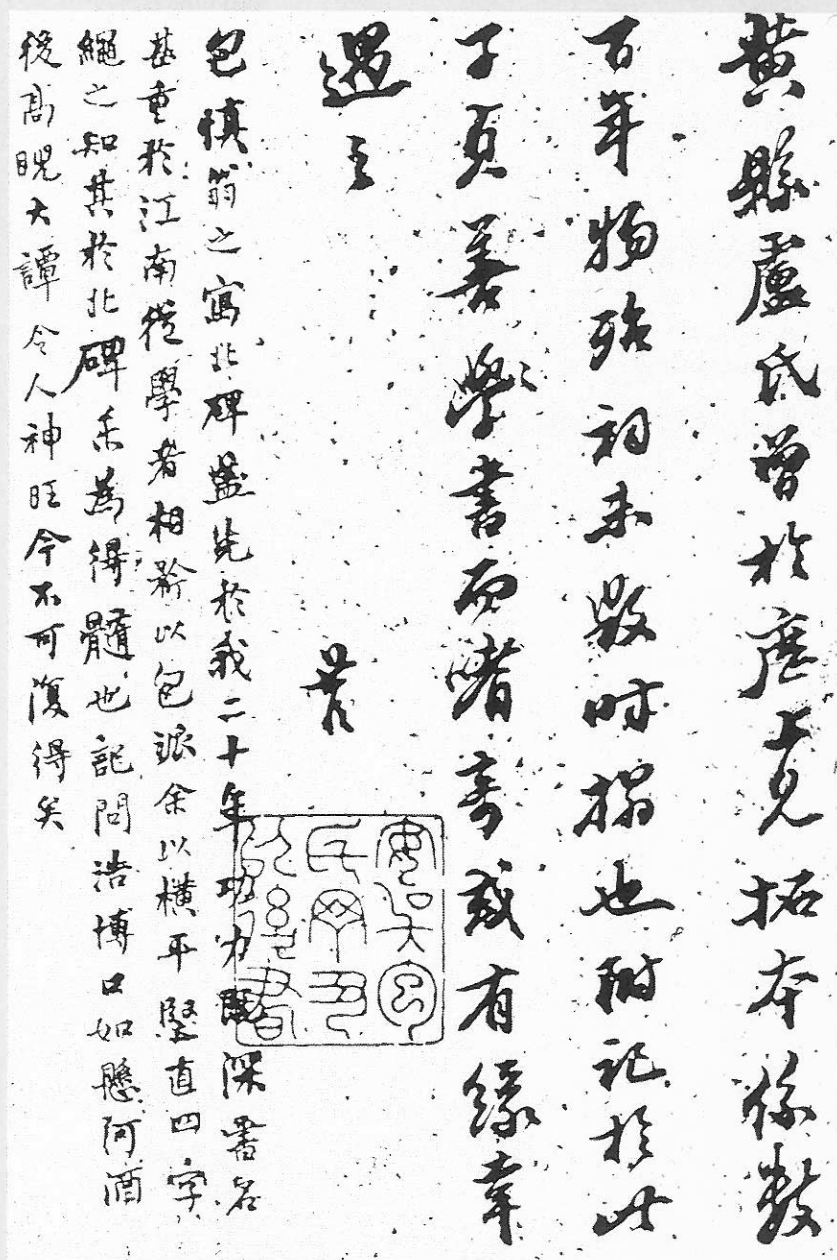 黄縣盧氏曾於廛上見拓本係數
百年物殆初未毀時搨也附記於此
子貞善學書而嗜奇或有緣幸
遇之 叟
包慎翁之寫北碑蓋先於我二十年功力既深書名
甚重於江南從學者相矜以包派余以橫平竪直四字
繩之知其於北碑未為得髓也記問浩博口如懸河酒
後高睨大譚令人神旺今不可復得矣